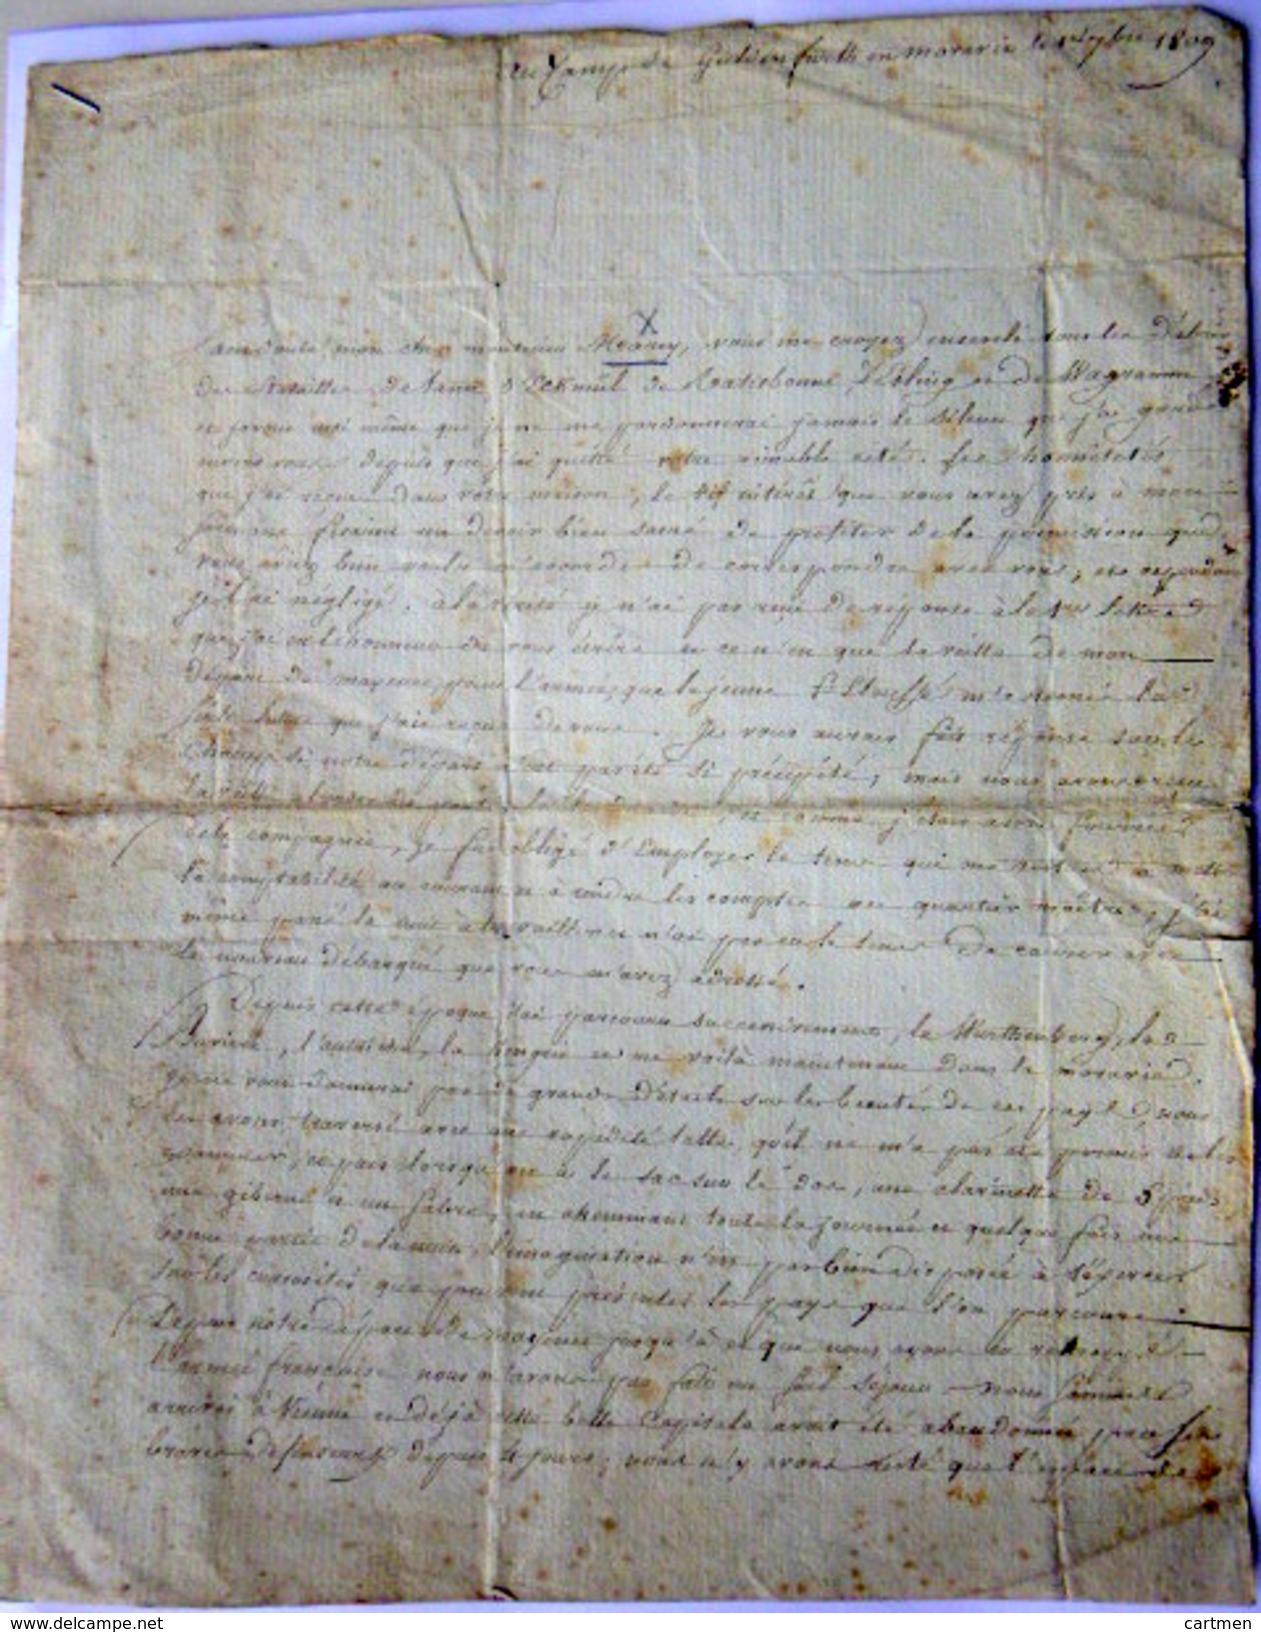 au Camp de en moravie le 7bre 1809
X
Sans doute mon cher monsieur Mercey, vous me croyez enseveli sous les débris
des Batailles de tann d'Eckmul de Ratisbonne d'Esling et de Wagramm,
et j'avoue moi même que je ne me pardonnerai jamais le silence que j'ai gardé
envers vous depuis que j'ai quitté votre aimable cité. Les honnêtetés
que j'ai reçues dans votre maison, le vif intérêt que vous avez pris à mon
un devoir bien sacré de profiter de la permission que
vous aviez bien voulu m'accorder de correspondre avec vous, et cependant
je l'ai négligé. à la vérité je n'ai pas reçu de réponse à la 1ere lettre
que j'ai eu l'honneur de vous écrire et ce n'est que la veille de mon
départ de mayence, pour l'armée, que le jeune m'a donné la
seule lettre que j'aie reçue de vous. Je vous aurais fait réponse sur le
champ si notre départ n'eut pas été si précipité, mais nous avons reçu
la veille l'ordre de partir le et comme j'étais alors fourrier
de la compagnie, je fus obligé d'employer le tems qui me restait à mettre
la comptabilité au courant et à rendre les comptes au quartier maître, j'ai
même passé la nuit à travailler et n'ai pas eu le tems de causer avec
le nouveau débarqué que vous m'avez adressé.
Depuis cette époque j'ai parcouru successivement, le Wurthemberg, la
Bavière, l'autriche, la hongrie et me voilà maintenant dans la moravie.
Je ne vous donnerai pas de grands détails sur les beautés de ces pays, nous
les avons traversé avec une rapidité telle, qu'il ne m'a pas été permis de les
examiner, et puis lorsqu'on a le sac sur le dos, une clarinette de 5 pieds
une giberne et un sabre, en cheminant toute la journée et quelque fois une
bonne partie de la nuit, l'imagination n'est pas bien disposée à s'exercer
sur les curiosités que peuvent présenter les pays que l'on parcoure.
Depuis notre départ de mayence jusqu'à ce que nous ayons eu rattrapé
l'armée française nous n'avons pas fait un seul séjour. nous sommes
arrivés à Vienne et déjà cette belle Capitale avait été abandonnée par ses
braves defenseurs depuis 4 jours; nous n'y avons resté que l'espace de
cartmen